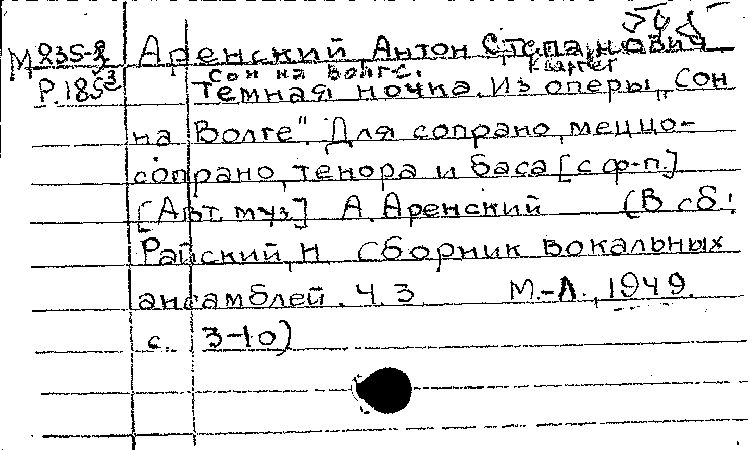 М 235-2 Аренский, Антон Степанович
Р.185³ Сон на Волге. Квартет
Темная ночка. Из оперы „Сон
на Волге". Для сопрано, меццо-
сопрано, тенора и баса [с ф-п.]
[Авт. муз.] А. Аренский (В сб:
Райский, Н Сборник вокальных
ансамблей. Ч. 3. М.-Л., 1949.
с. 3-10)